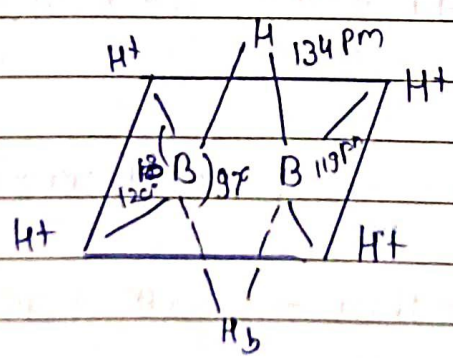 H
134 pm
H+
H+
B
)97
B
119pm
120°
H+
H+
Hb